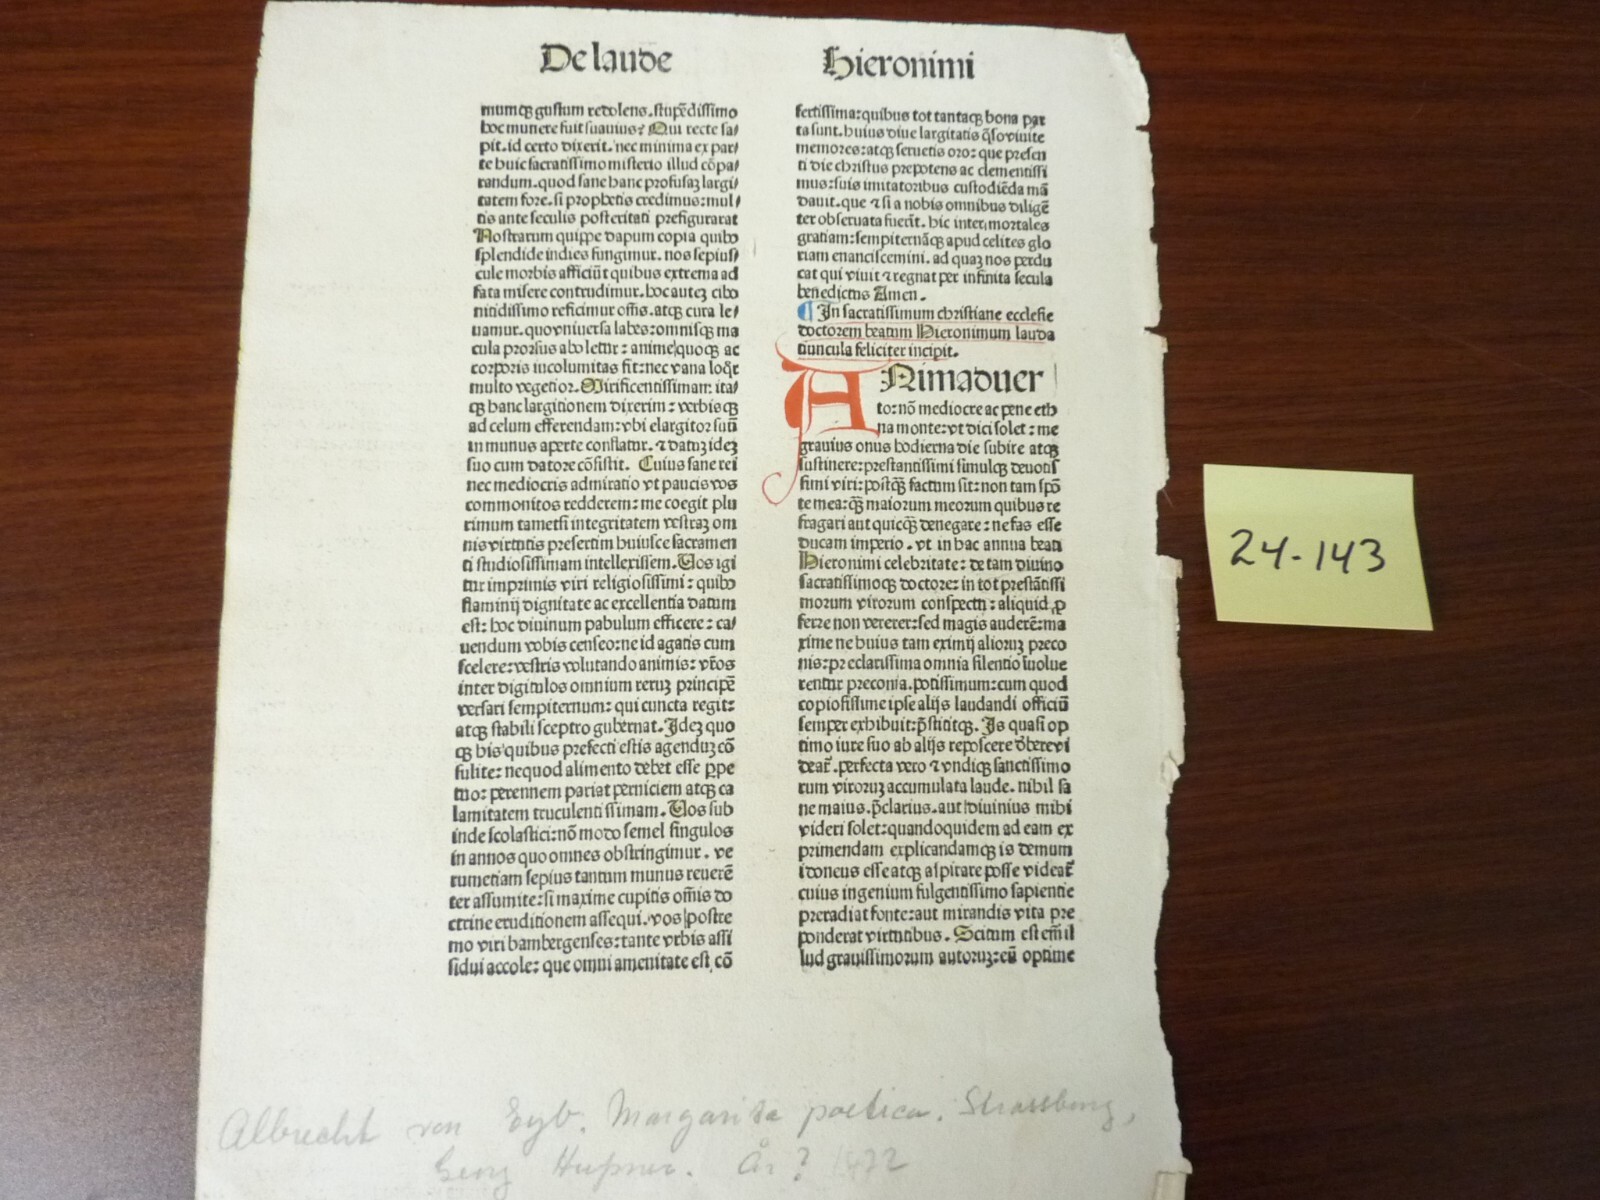 De laude
Hieronimi
mumqꝫ gustum redolens. stupēdissimo
hoc munere fuit suauius? Qui recte sa/
pit. id certo dixerit. nec minima ex par/
te huic sacratissimo misterio illud cōpa/
randum. quod sane hanc profusaꝫ largi/
tatem fore. si prophetis credimus: mul/
tis ante seculis posteritati prefigurarat
Nostrarum quippe dapum copia quibꝰ
splendide indies fungimur. nos sepius/
cule morbis afficiūt quibus extrema ad
fata misere contrudimur. hoc auteꝫ cibo
nitidissimo reficimur oīs. atqꝫ cura le/
uamur. quo vniuersa labes: omnisqꝫ ma
cula prorsus aboletur: anime quoqꝫ ac
corporis incolumitas fit: nec vana loqr̄
multo vegetior. Mirificentissimam ita/
qꝫ hanc largitionem dixerim: verbisqꝫ
ad celum efferendam: vbi elargitor suū
in munus aperte conflatur. ⁊ datuꝫ ideꝫ
suo cum datore cōsistit. Cuius sane rei
nec mediocris admiratio vt paucis vos
commonitos redderem: me coegit plu
rimum tametsi integritatem vestraꝫ om
nis virtutis presertim huiusce sacramen
ti studiosissimam intellexissem. Vos igi
tur imprimis viri religiosissimi: quibꝰ
flaminij dignitate ac excellentia datum
est: hoc diuinum pabulum efficere: ca/
uendum vobis censeo: ne id agatis cum
scelere: vestris volutando animis: vr̄os
inter digitulos omnium reruꝫ principē
versari sempiternum: qui cuncta regit:
atqꝫ stabili sceptro gubernat. Ideꝫ quo
qꝫ his quibus prefecti estis agenduꝫ cō
sulite: ne quod alimento debet esse ꝑpe
tuo: perennem pariat perniciem atqꝫ ca
lamitatem truculentissimam. Vos sub
inde scolastici: nō modo semel singulos
in annos quo omnes obstringimur. ve
rumetiam sepius tantum munus reuerē
ter assumite: si maxime cupitis oīs do
ctrine eruditionem assequi. vos postre
mo viri bambergenses: tante vrbis assi
sidui accole: que omni amenitate est cō
fertissima: quibus tot tantaqꝫ bona par
ta sunt. huius diue largitatis q̄so viuite
memores: atqꝫ seruetis oro: que presen
ti die christus prepotens ac clementissi
mus: suis imitatoribus custodiēda mā
dauit. que ⁊ si a nobis omnibus diligē
ter obseruata fuerīt. hic inter mortales
gratiam: sempiternāqꝫ apud celites glo
riam enanciscemini. ad quaꝫ nos perdu
cat qui viuit ⁊ regnat per infinita secula
benedictus Amen.
¶ In sacratissimum christiane ecclesie
doctorem beatum Hieronimum lauda
tiuncula feliciter incipit.
ANimaduer
to: nō mediocre ac pene eth
na monte: vt dici solet: me
grauius onus hodierna die subire atqꝫ
sustinere: prestantissimi simulqꝫ deuotis
simi viri: postqꝫ̄ factum sit: non tam spō
te mea: qꝫ̄ maiorum meorum quibus re
fragari aut quicqꝫ̄ denegare: nefas esse
ducam imperio. vt in hac annua beati
Hieronimi celebritate: de tam diuino
sacratissimoqꝫ doctore: in tot prestātissi
morum virorum conspectu: aliquid ꝓ
ferre non vererer: sed magis auderē: ma
xime ne huius tam eximij alioruꝫ preco
nis: preclarissima omnia silentio īuolue
rentur preconia. potissimum: cum quod
copiosissime ipse alijs laudandi officiū
semper exhibuit: p̄stititqꝫ. Is quasi op
timo iure suo ab alijs reposcere d̄berevi
deat̄. perfecta vero ⁊ vndiqꝫ sanctissimo
rum viroruꝫ accumulata laude. nihil sa
ne maius. p̄clarius. aut diuinius mihi
videri solet: quandoquidem ad eam ex
primendam explicandamqꝫ is demum
idoneus esse atqꝫ aspirare posse videat̄
cuius ingenium fulgentissimo sapientie
preradiat fonte: aut mirandis vita pre
ponderat virtutibus. Scitum est em̄ il
lud grauissimorum autoruꝫ: eū optime
24-143
Albrecht von Eyb. Margarita poetica. Strassburg,
Georg Husner. År? 1472